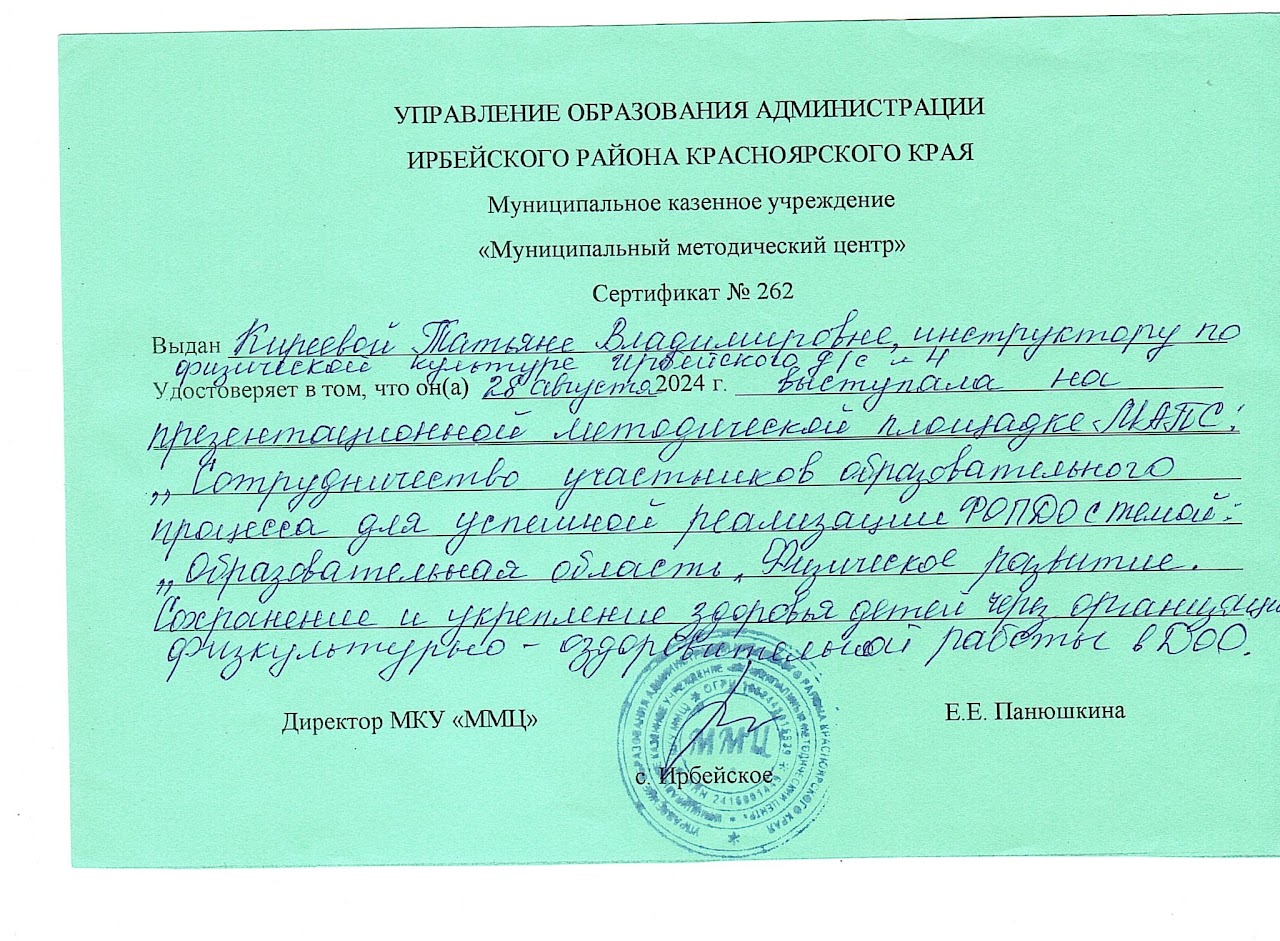 УПРАВЛЕНИЕ ОБРАЗОВАНИЯ АДМИНИСТРАЦИИ
ИРБЕЙСКОГО РАЙОНА КРАСНОЯРСКОГО КРАЯ
Муниципальное казенное учреждение
«Муниципальный методический центр»
Сертификат № 262
Выдан Киреевой Татьяне Владимировне, инструктору по
физической культуре Ирбейского д/с № 4
Удостоверяет в том, что он(а) 28 августа 2024 г. выступала на
презентационной методической площадке «МАПС:
„Сотрудничество участников образовательного
процесса для успешной реализации ФОПДО с темой:
„Образовательная область „Физическое развитие.
Сохранение и укрепление здоровья детей через организацию
физкультурно - оздоровительной работы в ДОО.
Директор МКУ «ММЦ» Е.Е. Панюшкина
ММЦ
с. Ирбейское